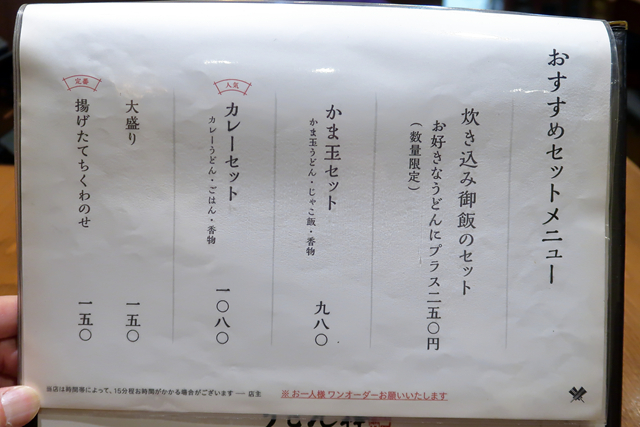 おすすめセットメニュー
炊き込み御飯のセット
お好きなうどんにプラス二五〇円
（数量限定）
かま玉セット
かま玉うどん・じゃこ飯・香物
九八〇
人気
カレーセット
カレーうどん・ごはん・香物
一〇八〇
大盛り
一五〇
定番
揚げたてちくわのせ
一五〇
当店は時間帯によって、15分程お時間がかかる場合がございます ── 店主
※ お一人様 ワンオーダーお願いいたします